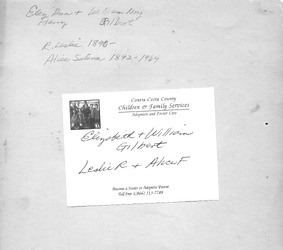 Eliz Ann + William Hoy
Henry Gilbert
R. Leslie 1890-
Alice Selena 1892-1964
Contra Costa County
Children & Family Services
Adoption and Foster Care
Elizabeth + William
Gilbert
Leslie R + Alice F
Become a Foster or Adoptive Parent
Toll Free 1(866) 313-7788